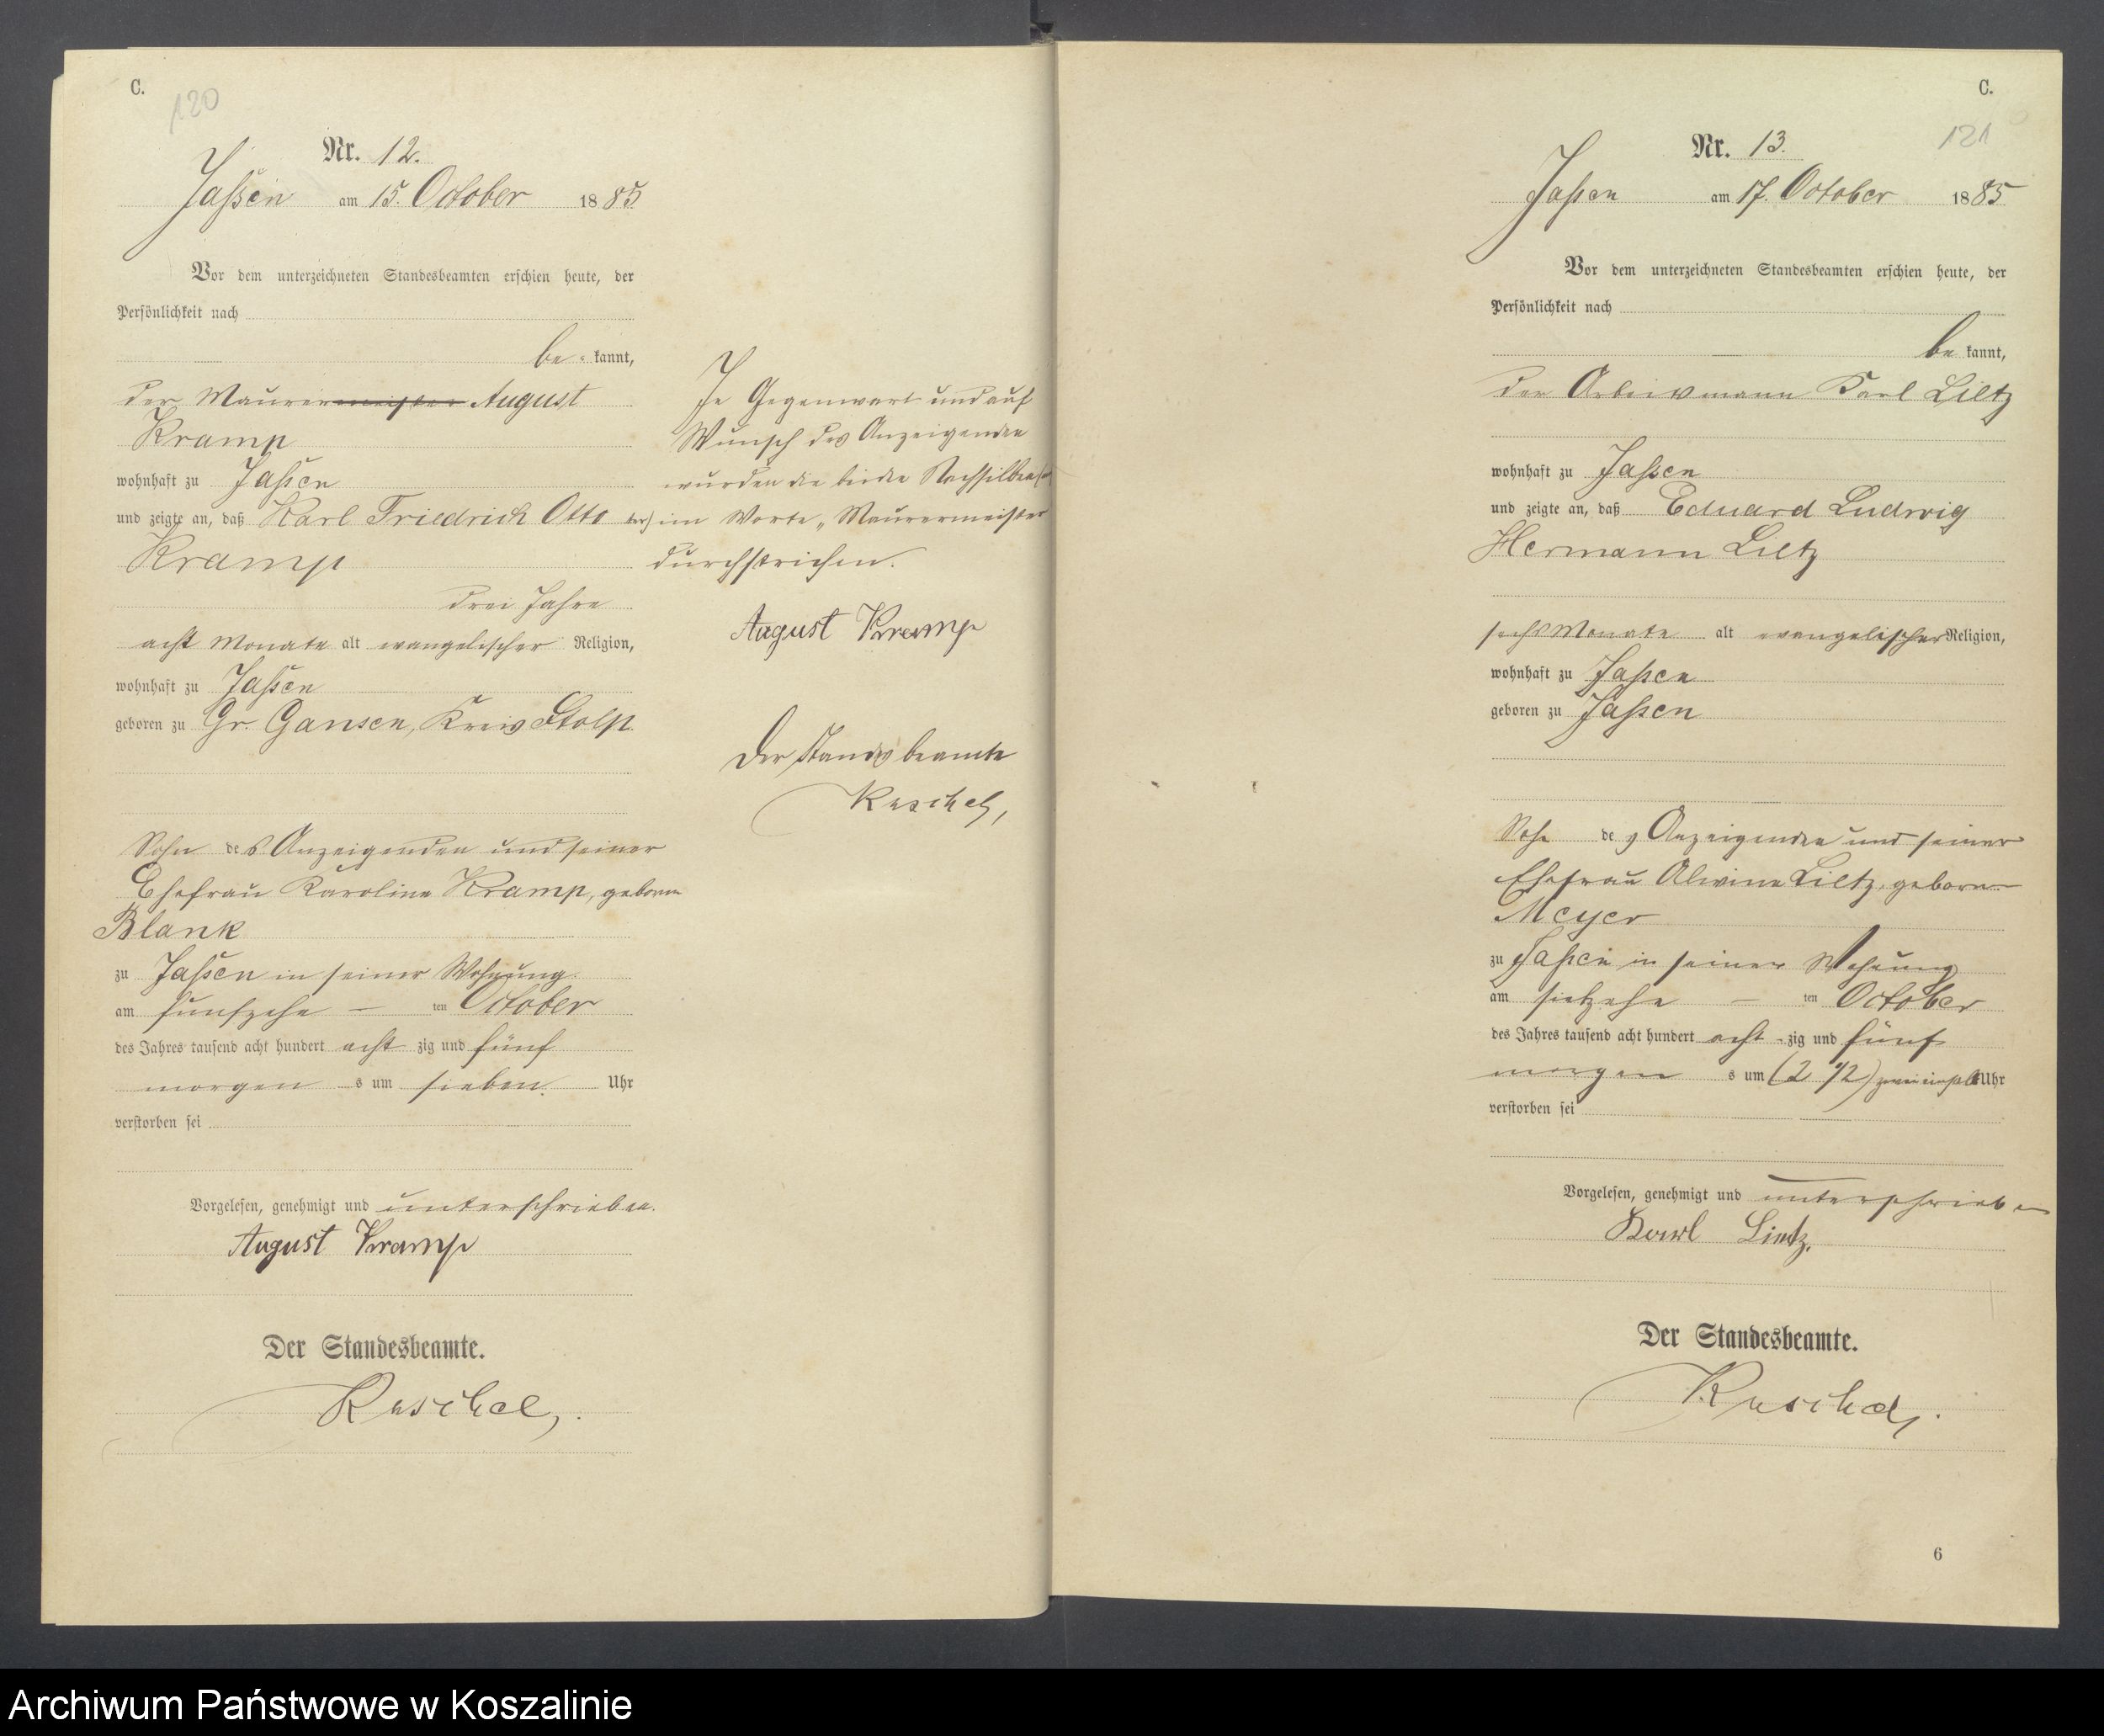 C.
120
Nr. 12.
Jaßen am 15. October 1885
Vor dem unterzeichneten Standesbeamten erschien heute, der
Persönlichkeit nach
be kannt,
der Maurermeister August
Kramp
wohnhaft zu Jaßen
und zeigte an, daß Karl Friedrich Otto
Kramp
drei Jahre
acht Monate alt evangelischer Religion,
wohnhaft zu Jaßen
geboren zu Gr. Gansen, Kreis Stolp
Sohn des Anzeigenden und seiner
Ehefrau Karoline Kramp, geboren
Blank
zu Jaßen in seiner Wohnung
am fünfzehn – ten October
des Jahres tausend acht hundert acht zig und fünf
morgen s um sieben Uhr
verstorben sei
Vorgelesen, genehmigt und unterschrieben.
August Kramp
Der Standesbeamte.
In Gegenwart und auf
Wunsch des Anzeigenden
wurden die beiden Nachsilben
ter) im Worte „Maurermeister
durchstrichen.
August Kramp
Der Standesbeamte
C.
121
Nr. 13.
Jaßen am 17. October 1885
Vor dem unterzeichneten Standesbeamten erschien heute, der
Persönlichkeit nach
be kannt,
der Arbeitsmann Karl Liltz
wohnhaft zu Jaßen
und zeigte an, daß Eduard Ludwig
Hermann Liltz
sechs Monate alt evangelischer Religion,
wohnhaft zu Jaßen
geboren zu Jaßen
Sohn des Anzeigenden und seiner
Ehefrau Alwine Liltz, geborne
Meyer
zu Jaßen in seiner Wohnung
am siebzehn – ten October
des Jahres tausend acht hundert acht zig und fünf
morgen s um (2 1/2) zweieinhalb Uhr
verstorben sei
Vorgelesen, genehmigt und unterschrieben
Karl Lintz.
Der Standesbeamte.
6
Archiwum Państwowe w Koszalinie